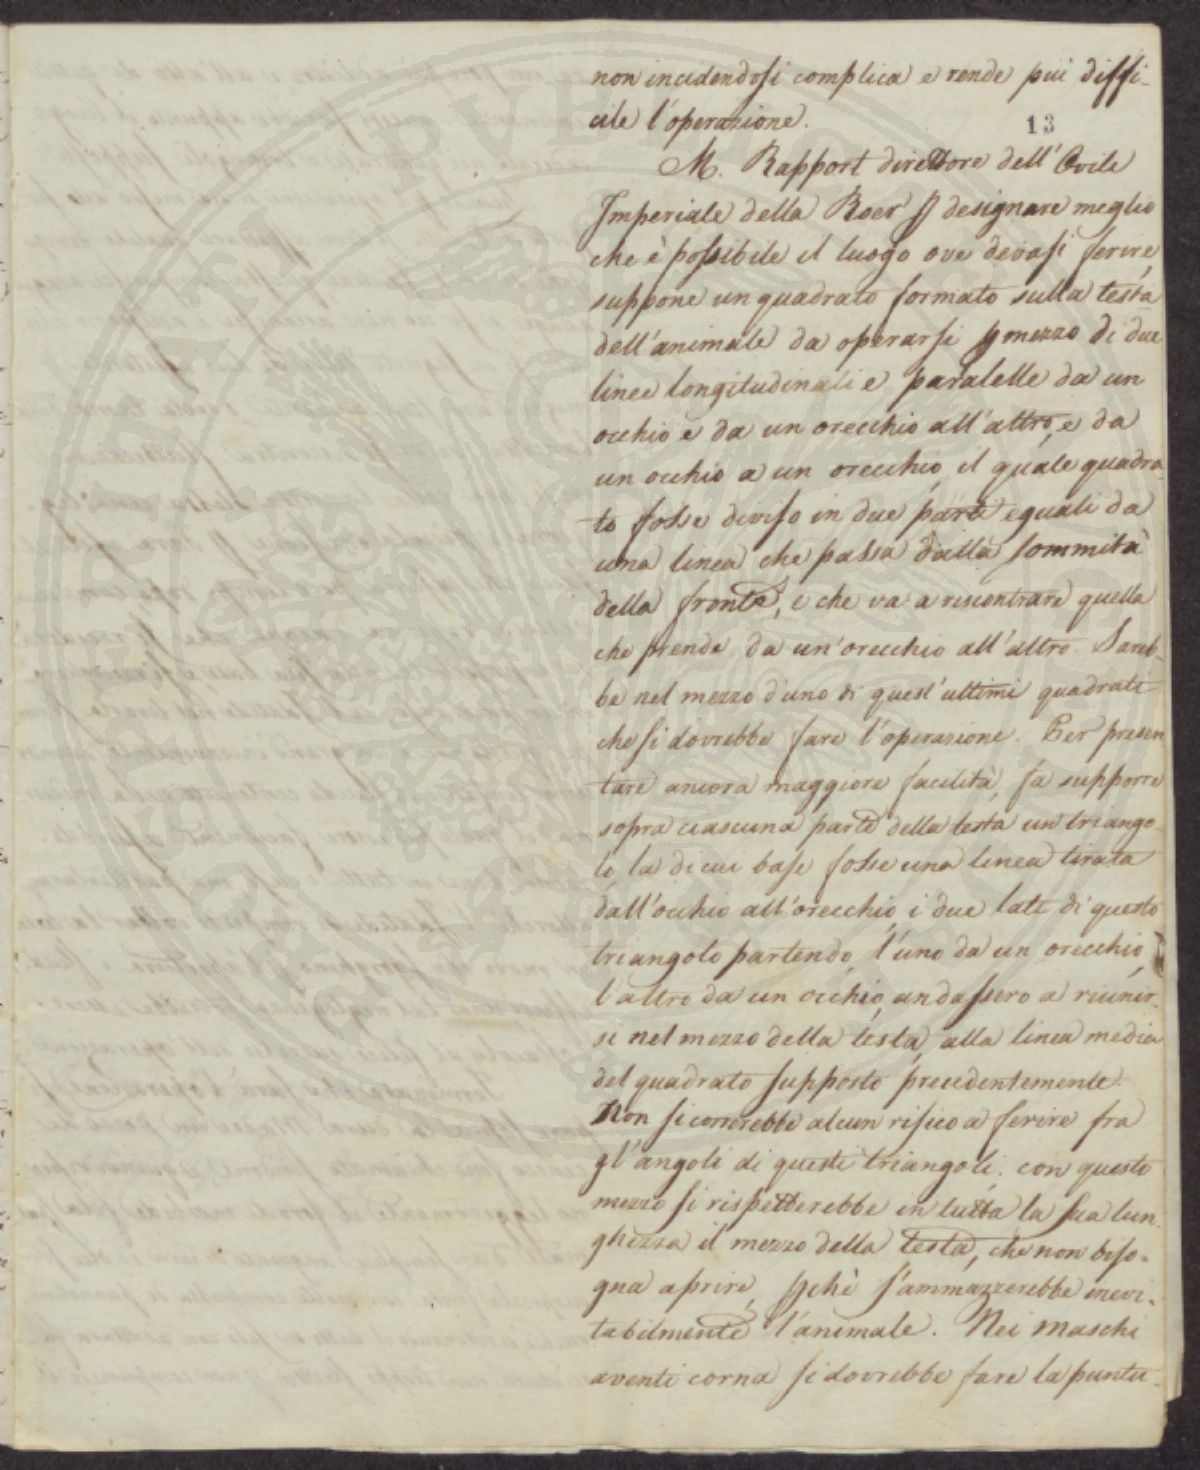 non incidendosi complica e rende più diffi-
cile l'operazione.
13
M. Rapport direttore dell'Ovile
Imperiale della Roer p designare meglio
che è possibile il luogo ove devasi ferire,
suppone un quadrato formato sulla testa
dell'animale da operarsi p mezzo di due
linee longitudinali e paralelle da un
occhio e da un orecchio all'altro, e da
un occhio a un orecchio, il quale quadra
to fosse diviso in due parti eguali da
una linea che passa dalla sommità
della fronte, e che va a riscontrare quella
che prende da un'orecchio all'altro. Sareb-
be nel mezzo d'uno di quest'ultimi quadrati
che si dovrebbe fare l'operazione. Per presen
tare ancora maggiore facilità, fa supporre
sopra ciascuna parte della testa un triango
lo la di cui base fosse una linea tirata
dall'occhio all'orecchio, i due lati di questo
triangolo partendo, l'uno da un orecchio,
l'altro da un occhio, andassero a riunir-
si nel mezzo della testa, alla linea media
del quadrato supposto precedentemente.
Non si correrebbe alcun risico a ferire fra
gl'angoli di questi triangoli. con questo
mezzo si rispetterebbe in tutta la sua lun
ghezza il mezzo della testa, che non biso-
gna aprire, pchè s'ammazzerebbe inevi-
tabilmente l'animale. Nei maschi
aventi corna si dovrebbe fare la puntu-